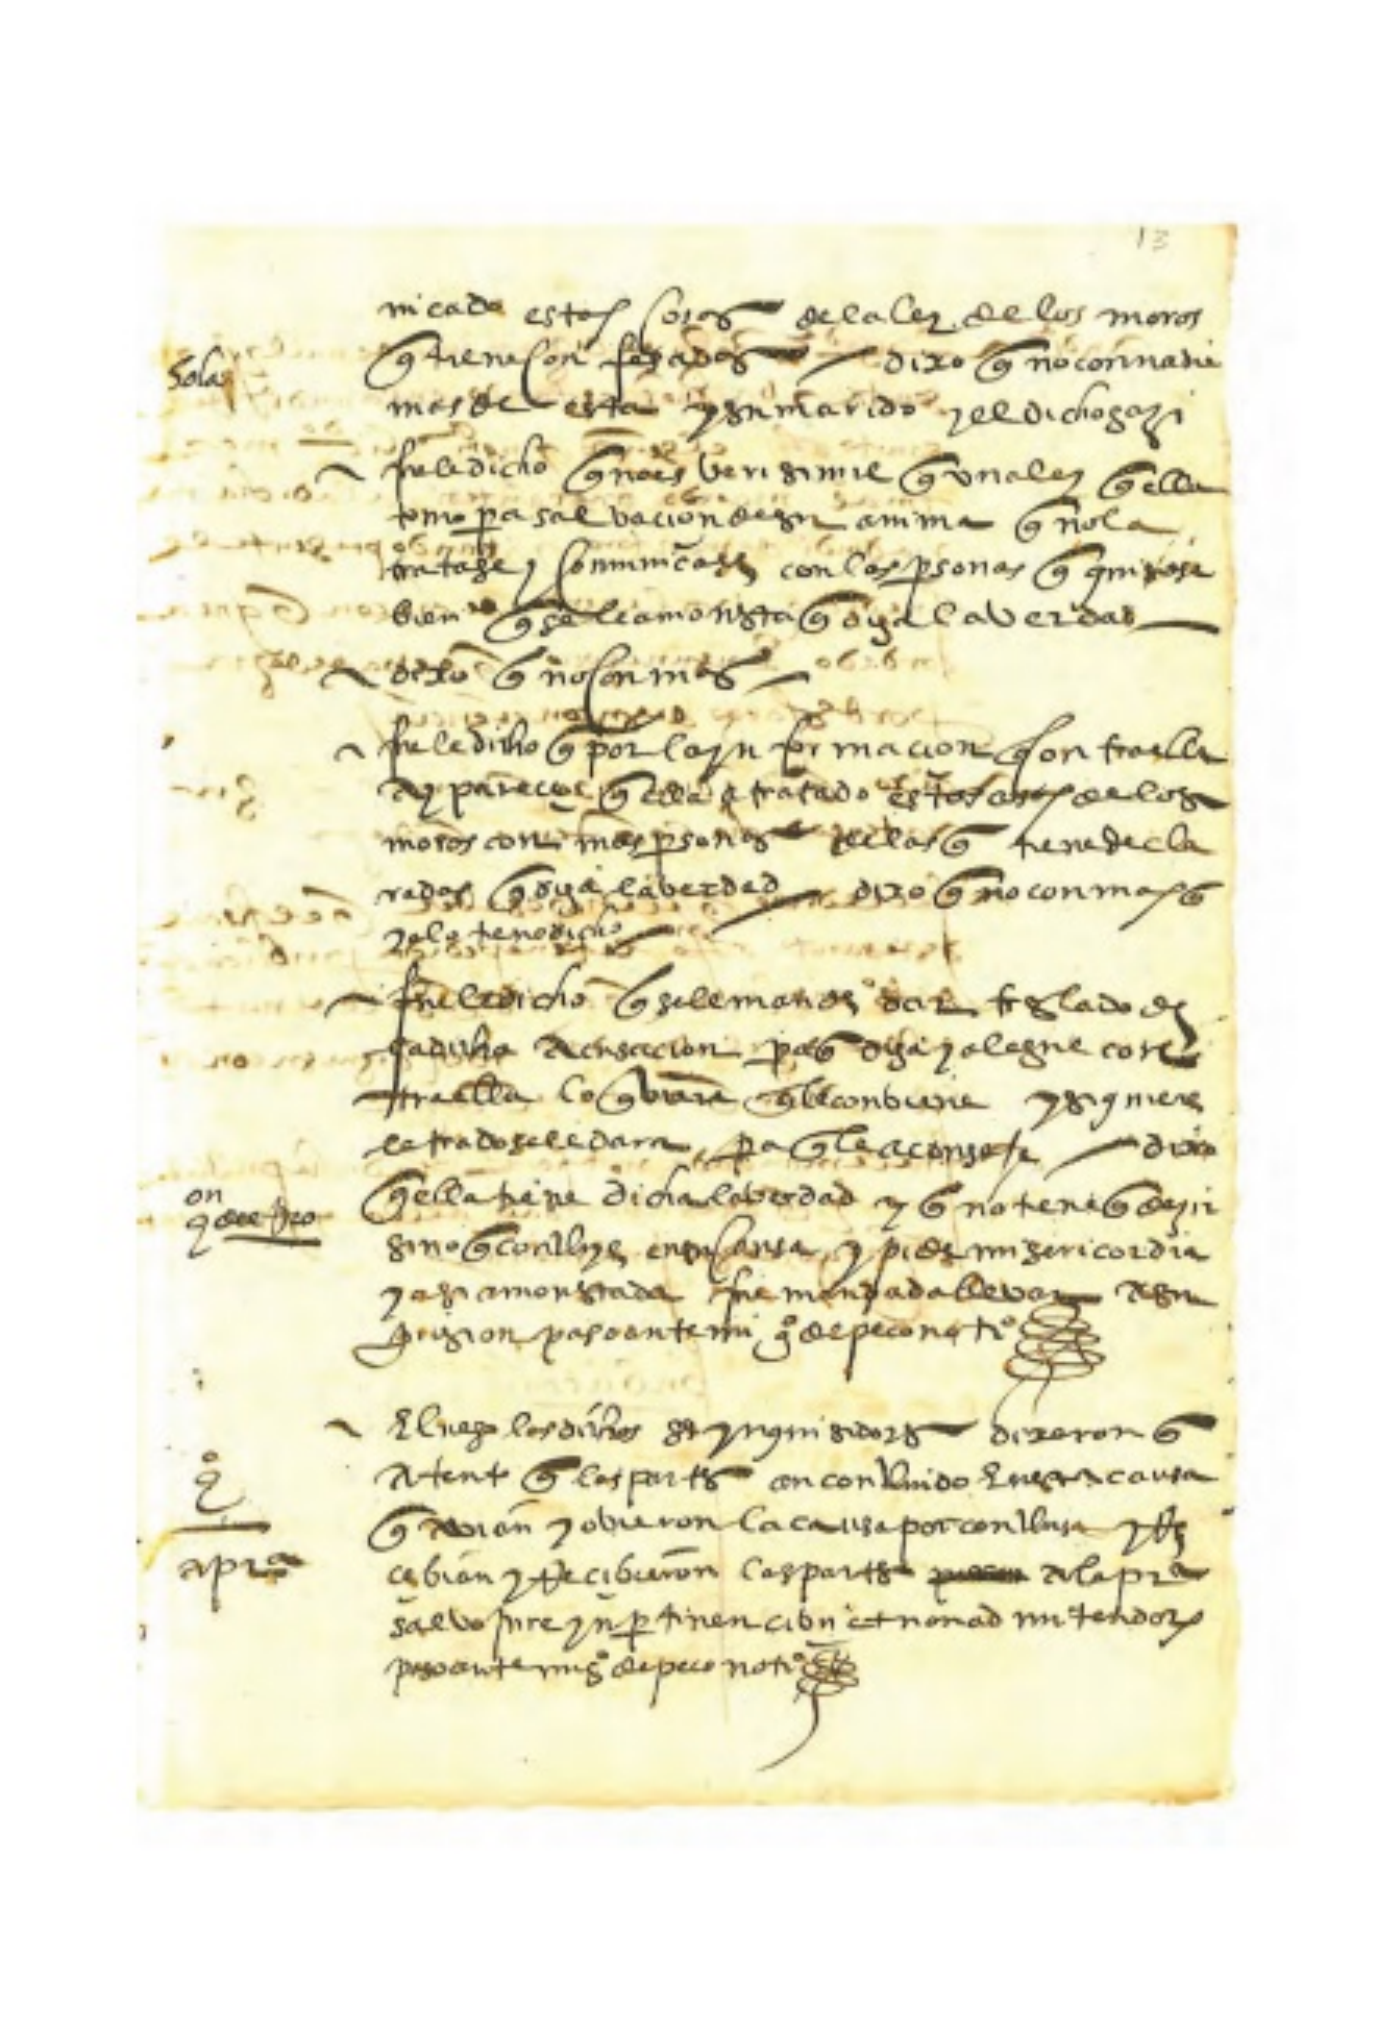 13
nicado estas cosas de la ley de los moros
q tiene confesadas / dixo q no con nadie
Sola
mas de esta y su marido y el dicho gazi
fuele dicho q no es verisimile q una ley q ella
tomo pa salvacion de su anima q no la
tratase y comunicase con las psonas q quisiese
bien q se le amonesta q diga la verdad
dixo q no con mas
fuele dicho q por la ynformacion q contra ella
ay parece q ella a tratado estas cosas de los
moros con mas psonas de las q tiene decla
radas q diga la verdad / dixo q no con mas q
ya lo tiene dicho
fuele dicho q se le manda dar treslado de
la dicha acusacion pa q diga y alegue con
tra ella lo q viere q le conviene y si quiere
letrado se le dara pa q le aconseje / dixo
on
q ella tiene dicha la verdad y q no tiene q dezir
sino q concluye en su causa y pide misericordia
y asi amonestada fue mandada llevar a su
prision paso ante mi go de peco notio
E luego los dichos ss ynquisidores dixeron q
atento q las partes an concluido en esta causa
qo
q avian y ovieron la causa por conclusa y re
cebian y recibieron las partes a la pra
a pra
salvo jure ynpertinenciun et non admitendor
paso ante mi go de peco notio